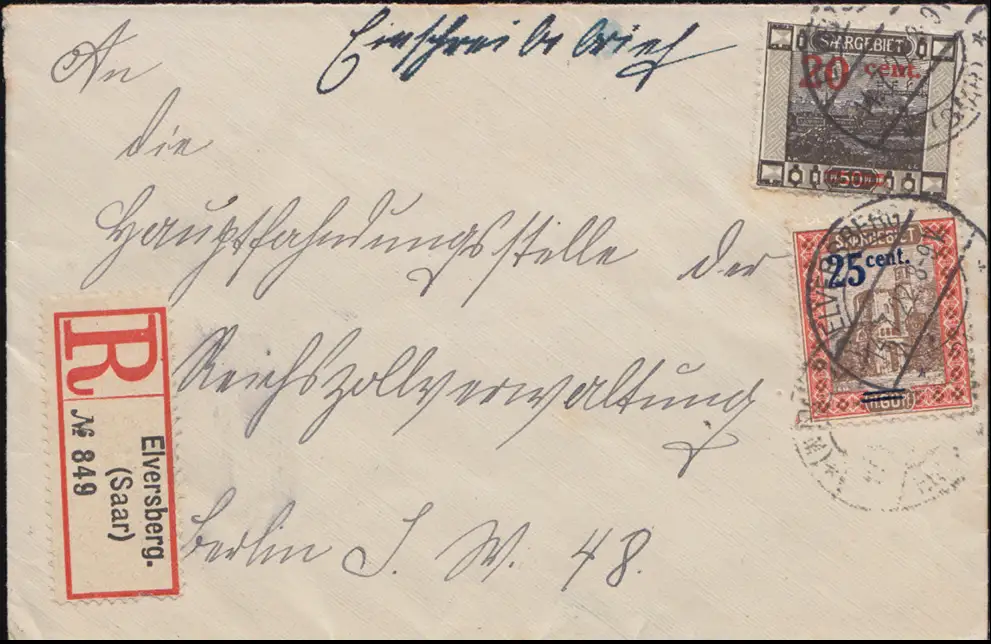 Einschreibebrief
An
die
Hauptfahndungsstelle der
Reichszollverwaltung
Berlin S. W. 48.
R
Elversberg.
(Saar)
№ 849
SAARGEBIET
20 cent.
50
SAARGEBIET
25 cent.
ELVERSBERG
(SAAR)